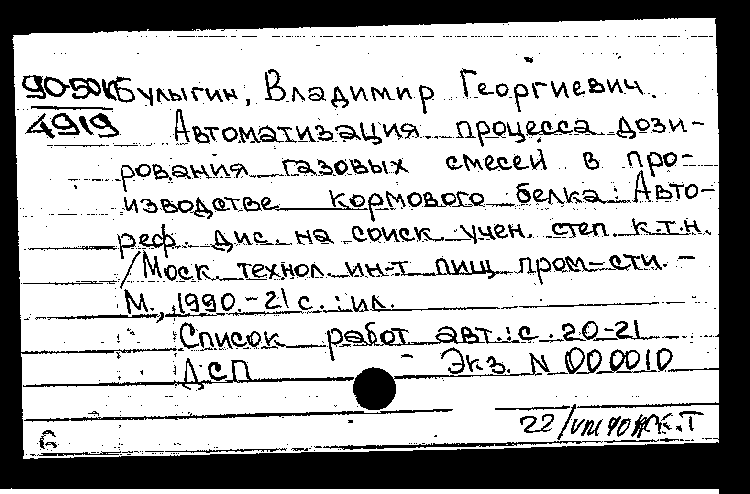 90-50К Булыгин, Владимир Георгиевич.
4919 Автоматизация процесса дози-
рования газовых смесей в про-
изводстве кормового белка: Авто-
реф. дис. на соиск. учен. степ. к.т.н.
/Моск. технол. ин-т пищ. пром-сти. -
М., 1990. - 21 с. : ил.
Список работ авт.: с. 20-21
ДСП - Экз. N 000010
22/
б